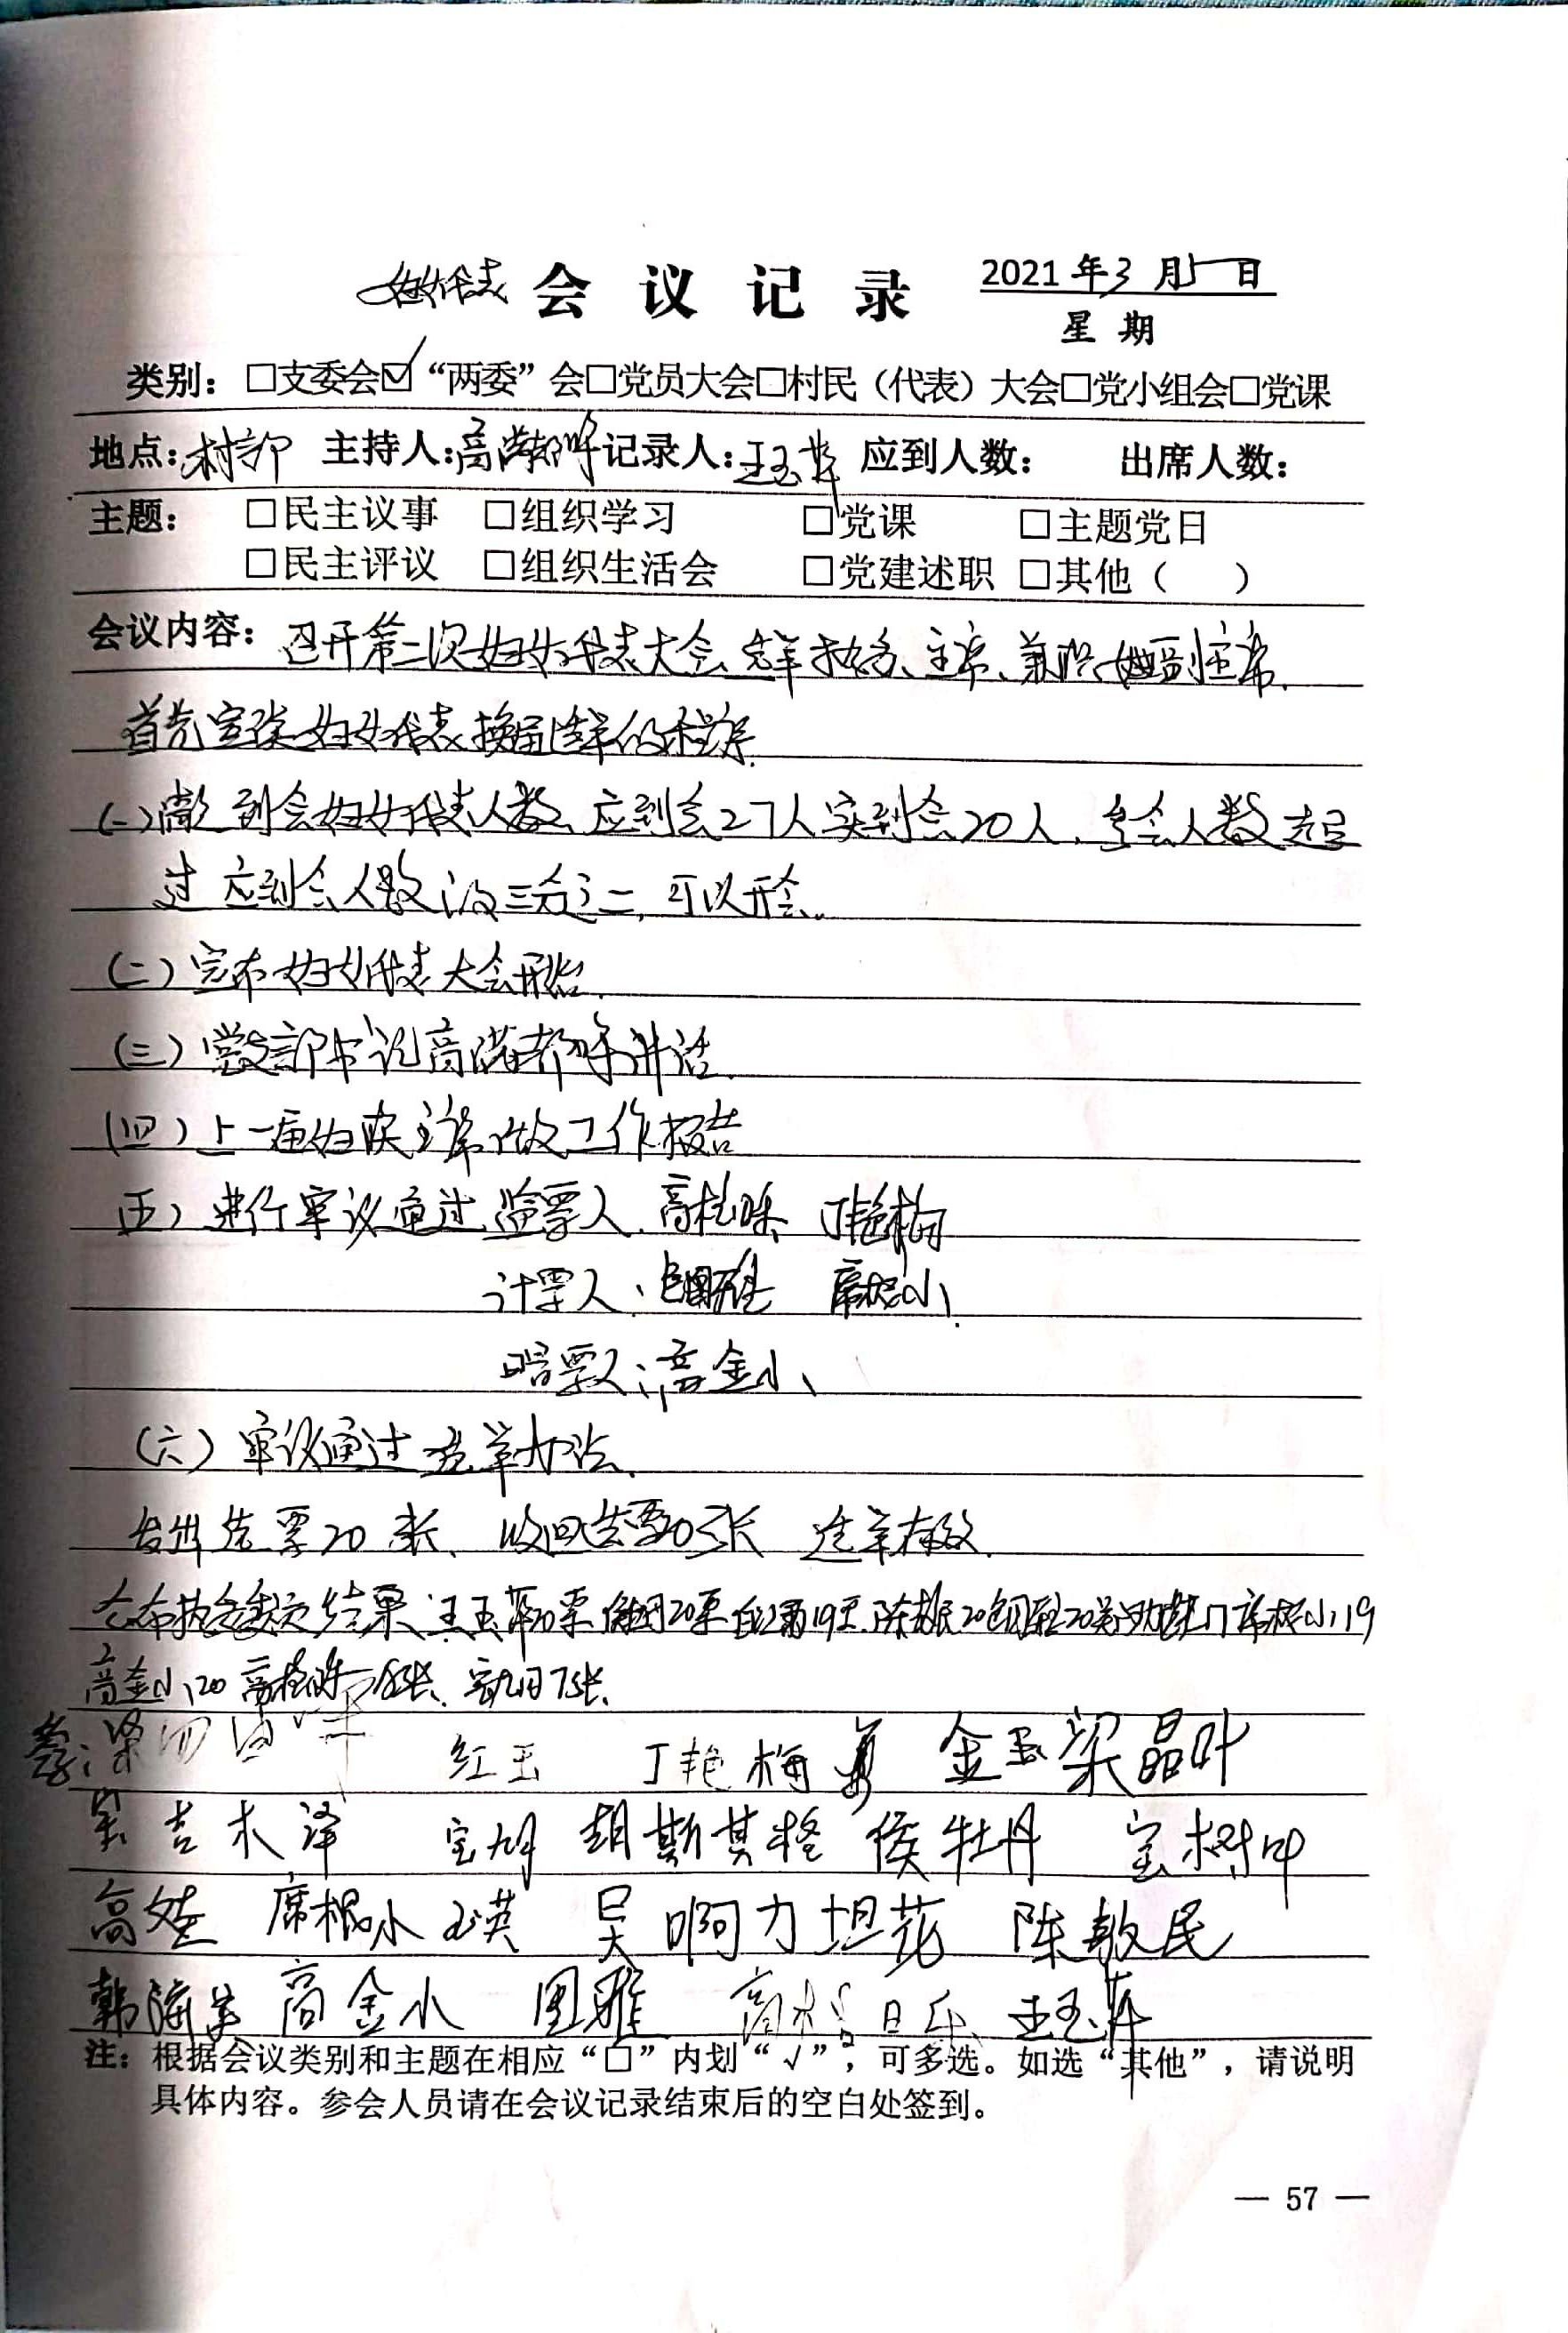 妇女代表 会议记录 2021年3月15日
星期
类别：□支委会☑“两委”会□党员大会□村民（代表）大会□党小组会□党课
地点：村部 主持人：高满都呼 记录人：王玉萍 应到人数： 出席人数：
主题： □民主议事 □组织学习 □党课 □主题党日
□民主评议 □组织生活会 □党建述职 □其他（ ）
会议内容：召开第二次妇女代表大会 选举执委、主席、兼职副主席.
首先宣读妇女代表换届选举的程序.
(一)清点到会妇女代表人数 应到会27人实到会20人，参会人数超
过应到会人数的三分之二，可以开会。
(二)宣布妇女代表大会开始.
(三)党支部书记高满都呼讲话.
(四)上一届妇联主席做工作报告
五）进行审议通过 监票人 丁艳梅
计票人： 席根小
唱票人：高金小
(六）审议通过选举办法.
发出选票20张、收回选票20张 选举有效.
公布执委 结果 王玉萍20票 20票 19票 陈敖民20 20 席根小19
高金小20 宝旭日7张
红玉 丁艳梅 金玉 梁晶叶
吉木泽 宝旭 胡斯其格 侯牡丹 宝树
高 席根小 玉英 吴啊力坦花 陈敖民
韩海 高金小 图雅 高 王玉萍
注：根据会议类别和主题在相应“口”内划“√”，可多选。如选“其他”，请说明
具体内容。参会人员请在会议记录结束后的空白处签到。
— 57 —